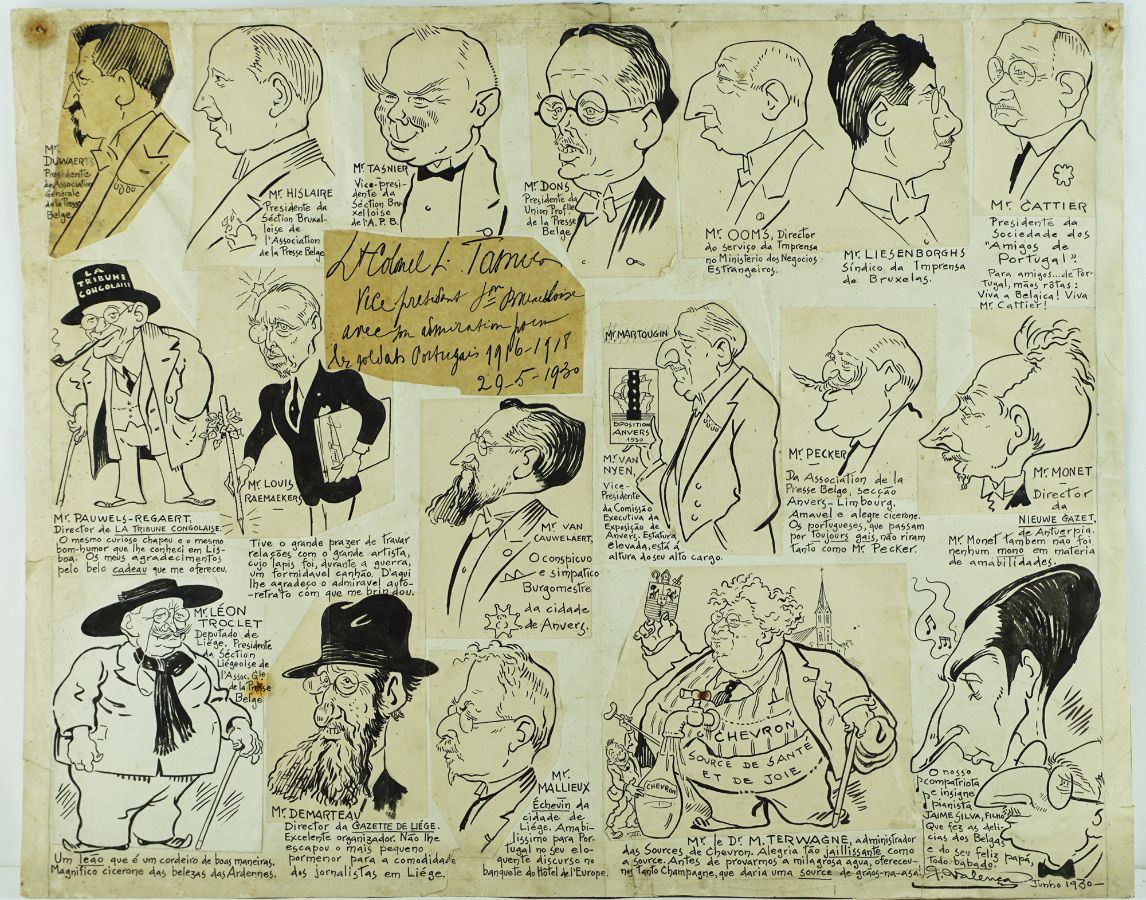 Mr.
DUWAERTS
Presidente
da Association
Générale
de la Presse
Belge
Mr. HISLAIRE
Presidente da
Séction Bruxel-
loise de
l'Association
de la Presse Belge
Mr. TASNIER
Vice-presi-
dente da
Séction Bru-
xelloise
de l'A.P.B.
Mr. DONS
Presidente da
Union Profelle
de la Presse
Belge
Mr. OOMS, Director
do serviço da Imprensa
no Ministério dos Negocios
Estrangeiros.
Mr. LIESENBORGHS
Síndico da Imprensa
de Bruxelas.
Mr. CATTIER
Presidente da
Sociedade dos
"Amigos de
Portugal".
Para amigos... de Por-
tugal, mãos rôtas:
Viva a Belgica! Viva
Mr. Cattier!
Lt Colonel L. Tasnier
Vice président Son Bruxelloise
avec son admiration pour
les soldats Portugais 1916-1918
29-5-1930
LA
TRIBUNE
CONGOLAISE
Mr. PAUWELS-REGAERT,
Director de LA TRIBUNE CONGOLAISE.
O mesmo curioso chapeu e o mesmo
bom-humor que lhe conheci em Lis-
boa. Os meus agradecimentos
pelo belo cadeau que me ofereceu.
Mr. LOUIS
RAEMAEKERS
Tive o grande prazer de travar
relações com o grande artista,
cujo lapis foi, durante a guerra,
um formidavel canhão. D'aqui
lhe agradeço o admiravel auto-
retrato com que me brindou.
Mr. VAN
CAUWELAERT,
O conspicuo
e simpatico
Burgomestre
da cidade
de Anvers.
Mr. MARTOUGIN
EXPOSITION
ANVERS
1930
Mr. VAN
NYEN,
Vice-
Presidente
da Comissão
Executiva da
Exposição de
Anvers. Estatura
elevada, está á
altura do seu alto cargo.
Mr. PECKER
Da Association de la
Presse Belge, secção
Anvers-Limbourg.
Amavel e alegre cicerone.
Os portugueses, que passam
por toujours gais, não riram
tanto como Mr. Pecker.
Mr. MONET
Director
da
NIEUWE GAZET,
de Antuerpia.
Mr. Monet tambem não foi
nenhum mono em materia
de amabilidades.
Mr. LÉON
TROCLET
Deputado de
Liége. Presidente
da Séction
Liégeoise de
l'Assoc. Gle
de la Presse
Belge
Um leão que é um cordeiro de boas maneiras.
Magnifico cicerone das belezas das Ardennes.
Mr. DEMARTEAU
Director da GAZETTE DE LIÉGE.
Excelente organizador. Não lhe
escapou o mais pequeno
pormenor para a comodidade
dos jornalistas em Liége.
Mr.
MALLIEUX
Échevin da
cidade de
Liége. Amabi-
lissimo para Por-
tugal no seu elo-
quente discurso no
banquete do Hôtel de l'Europe.
CHEVRON
SOURCE DE SANTÉ
ET DE JOIE
CHEVRON
Mr. le Dr. M. TERWAGNE, administrador
das Sources de Chevron. Alegria tão jaillissante como
a source. Antes de provarmos a milagrosa agua, ofereceu-
nos tanto Champagne, que daria uma source de grãos-na-asa!
O nosso
compatriota
e insigne
pianista
JAIME SILVA, FILHO
Que fez as deli-
cias dos Belgas
e do seu feliz papá,
Todo babado.
F. Valença
Junho 1930